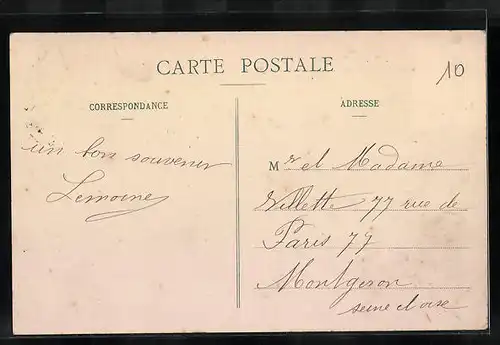 CARTE POSTALE
10
CORRESPONDANCE
ADRESSE
un bon souvenir
Lemoine
Mr et Madame
Villette 77 rue de
Paris 77
Montgeron
seine et oise